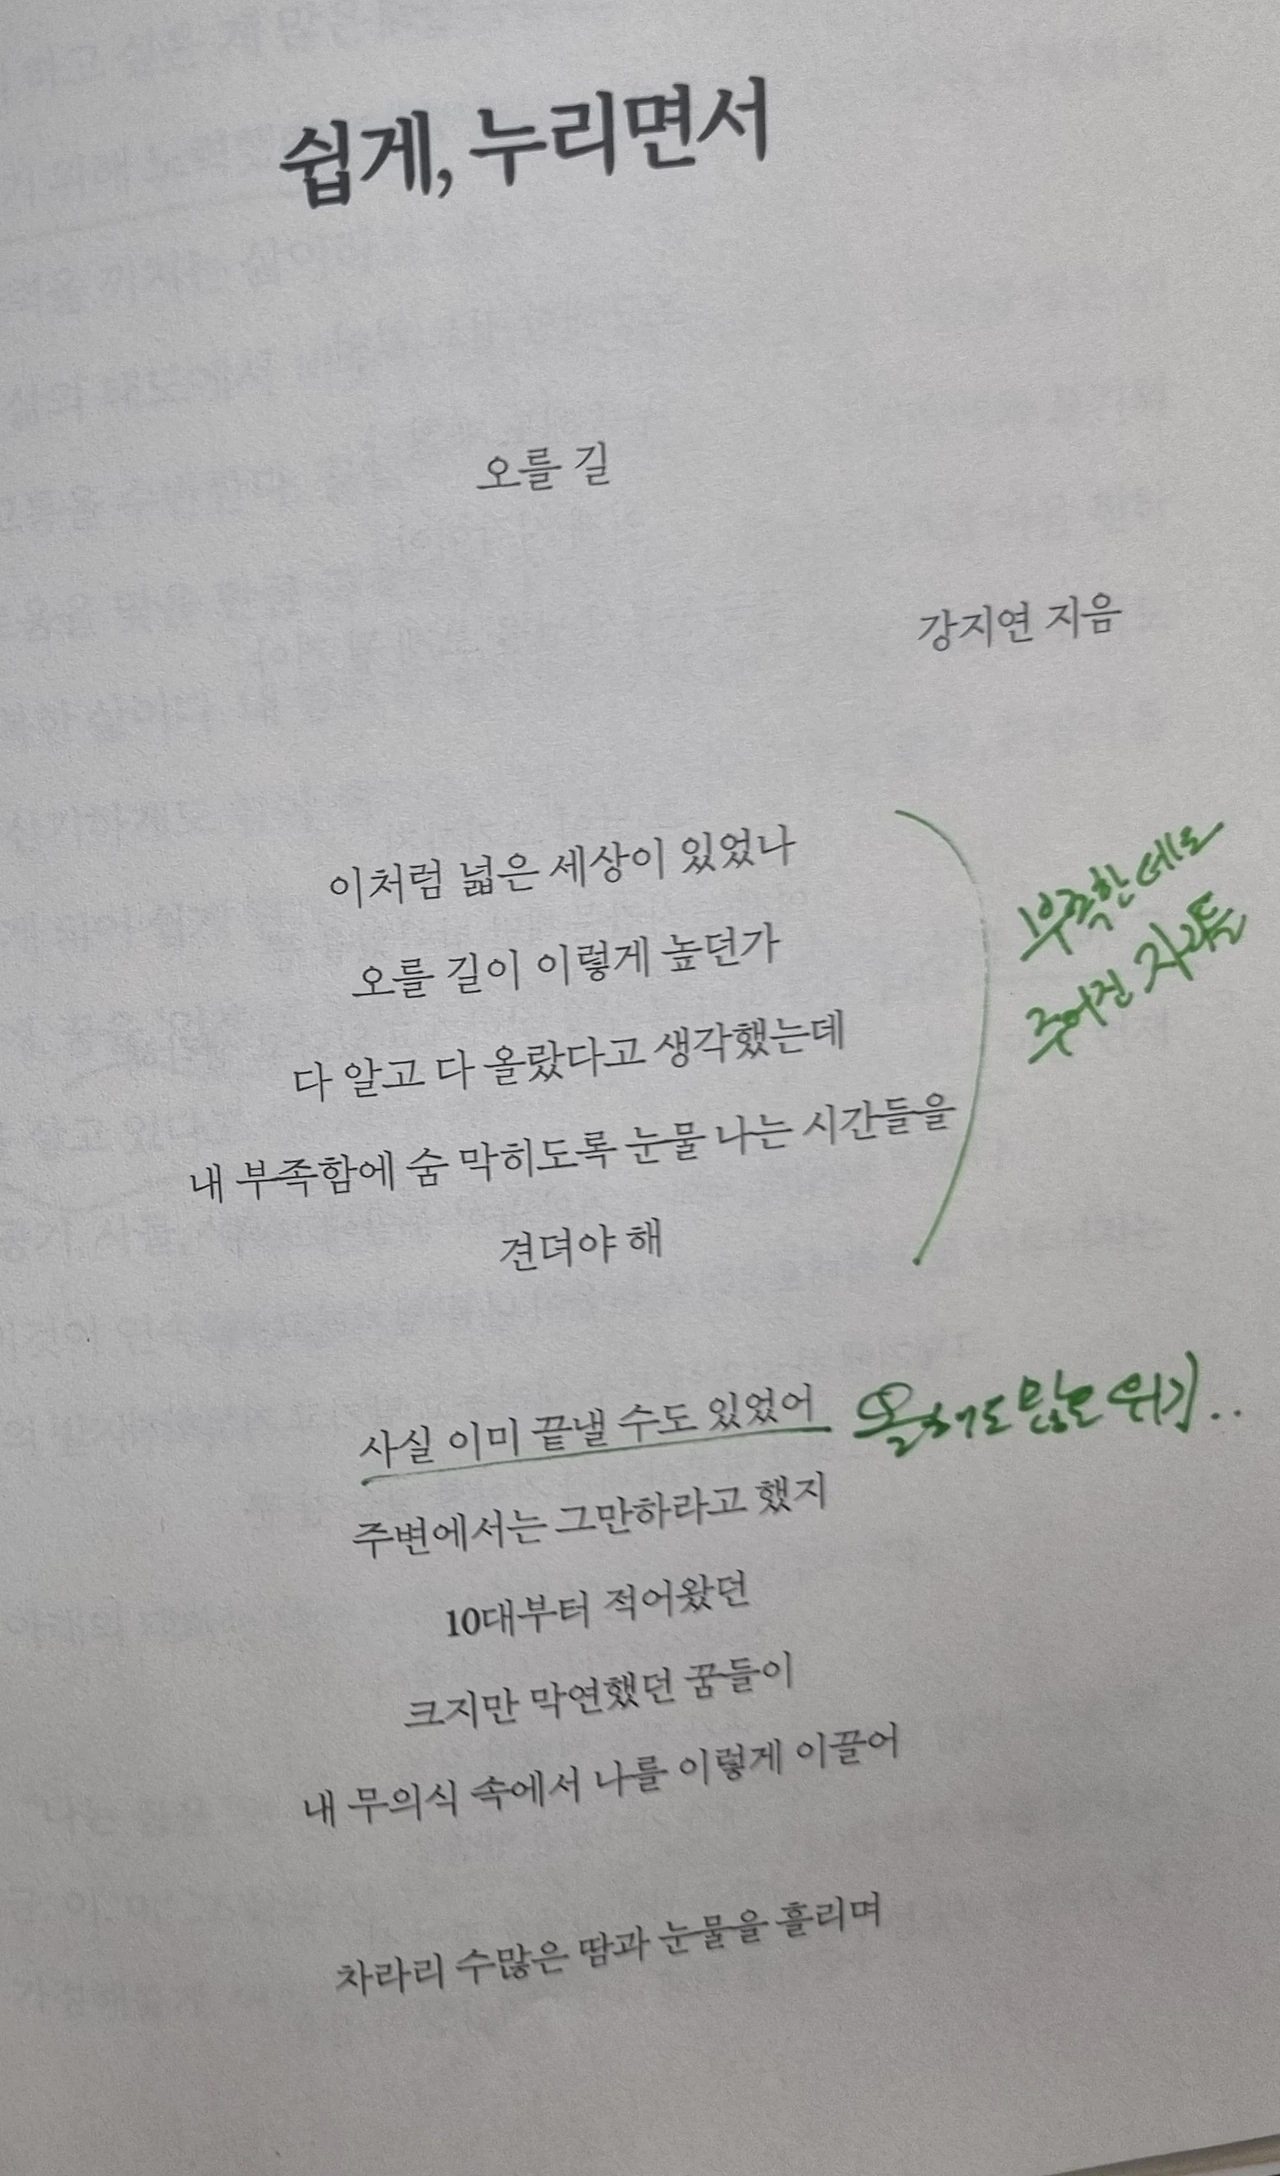 쉽게, 누리면서
오를 길
강지연 지음
이처럼 넓은 세상이 있었나
오를 길이 이렇게 높던가
다 알고 다 올랐다고 생각했는데
내 부족함에 숨 막히도록 눈물 나는 시간들을
견뎌야 해
부족한데도
주어진 자리들
사실 이미 끝낼 수도 있었어
주변에서는 그만하라고 했지
10대부터 적어왔던
크지만 막연했던 꿈들이
내 무의식 속에서 나를 이렇게 이끌어
차라리 수많은 땀과 눈물을 흘리며